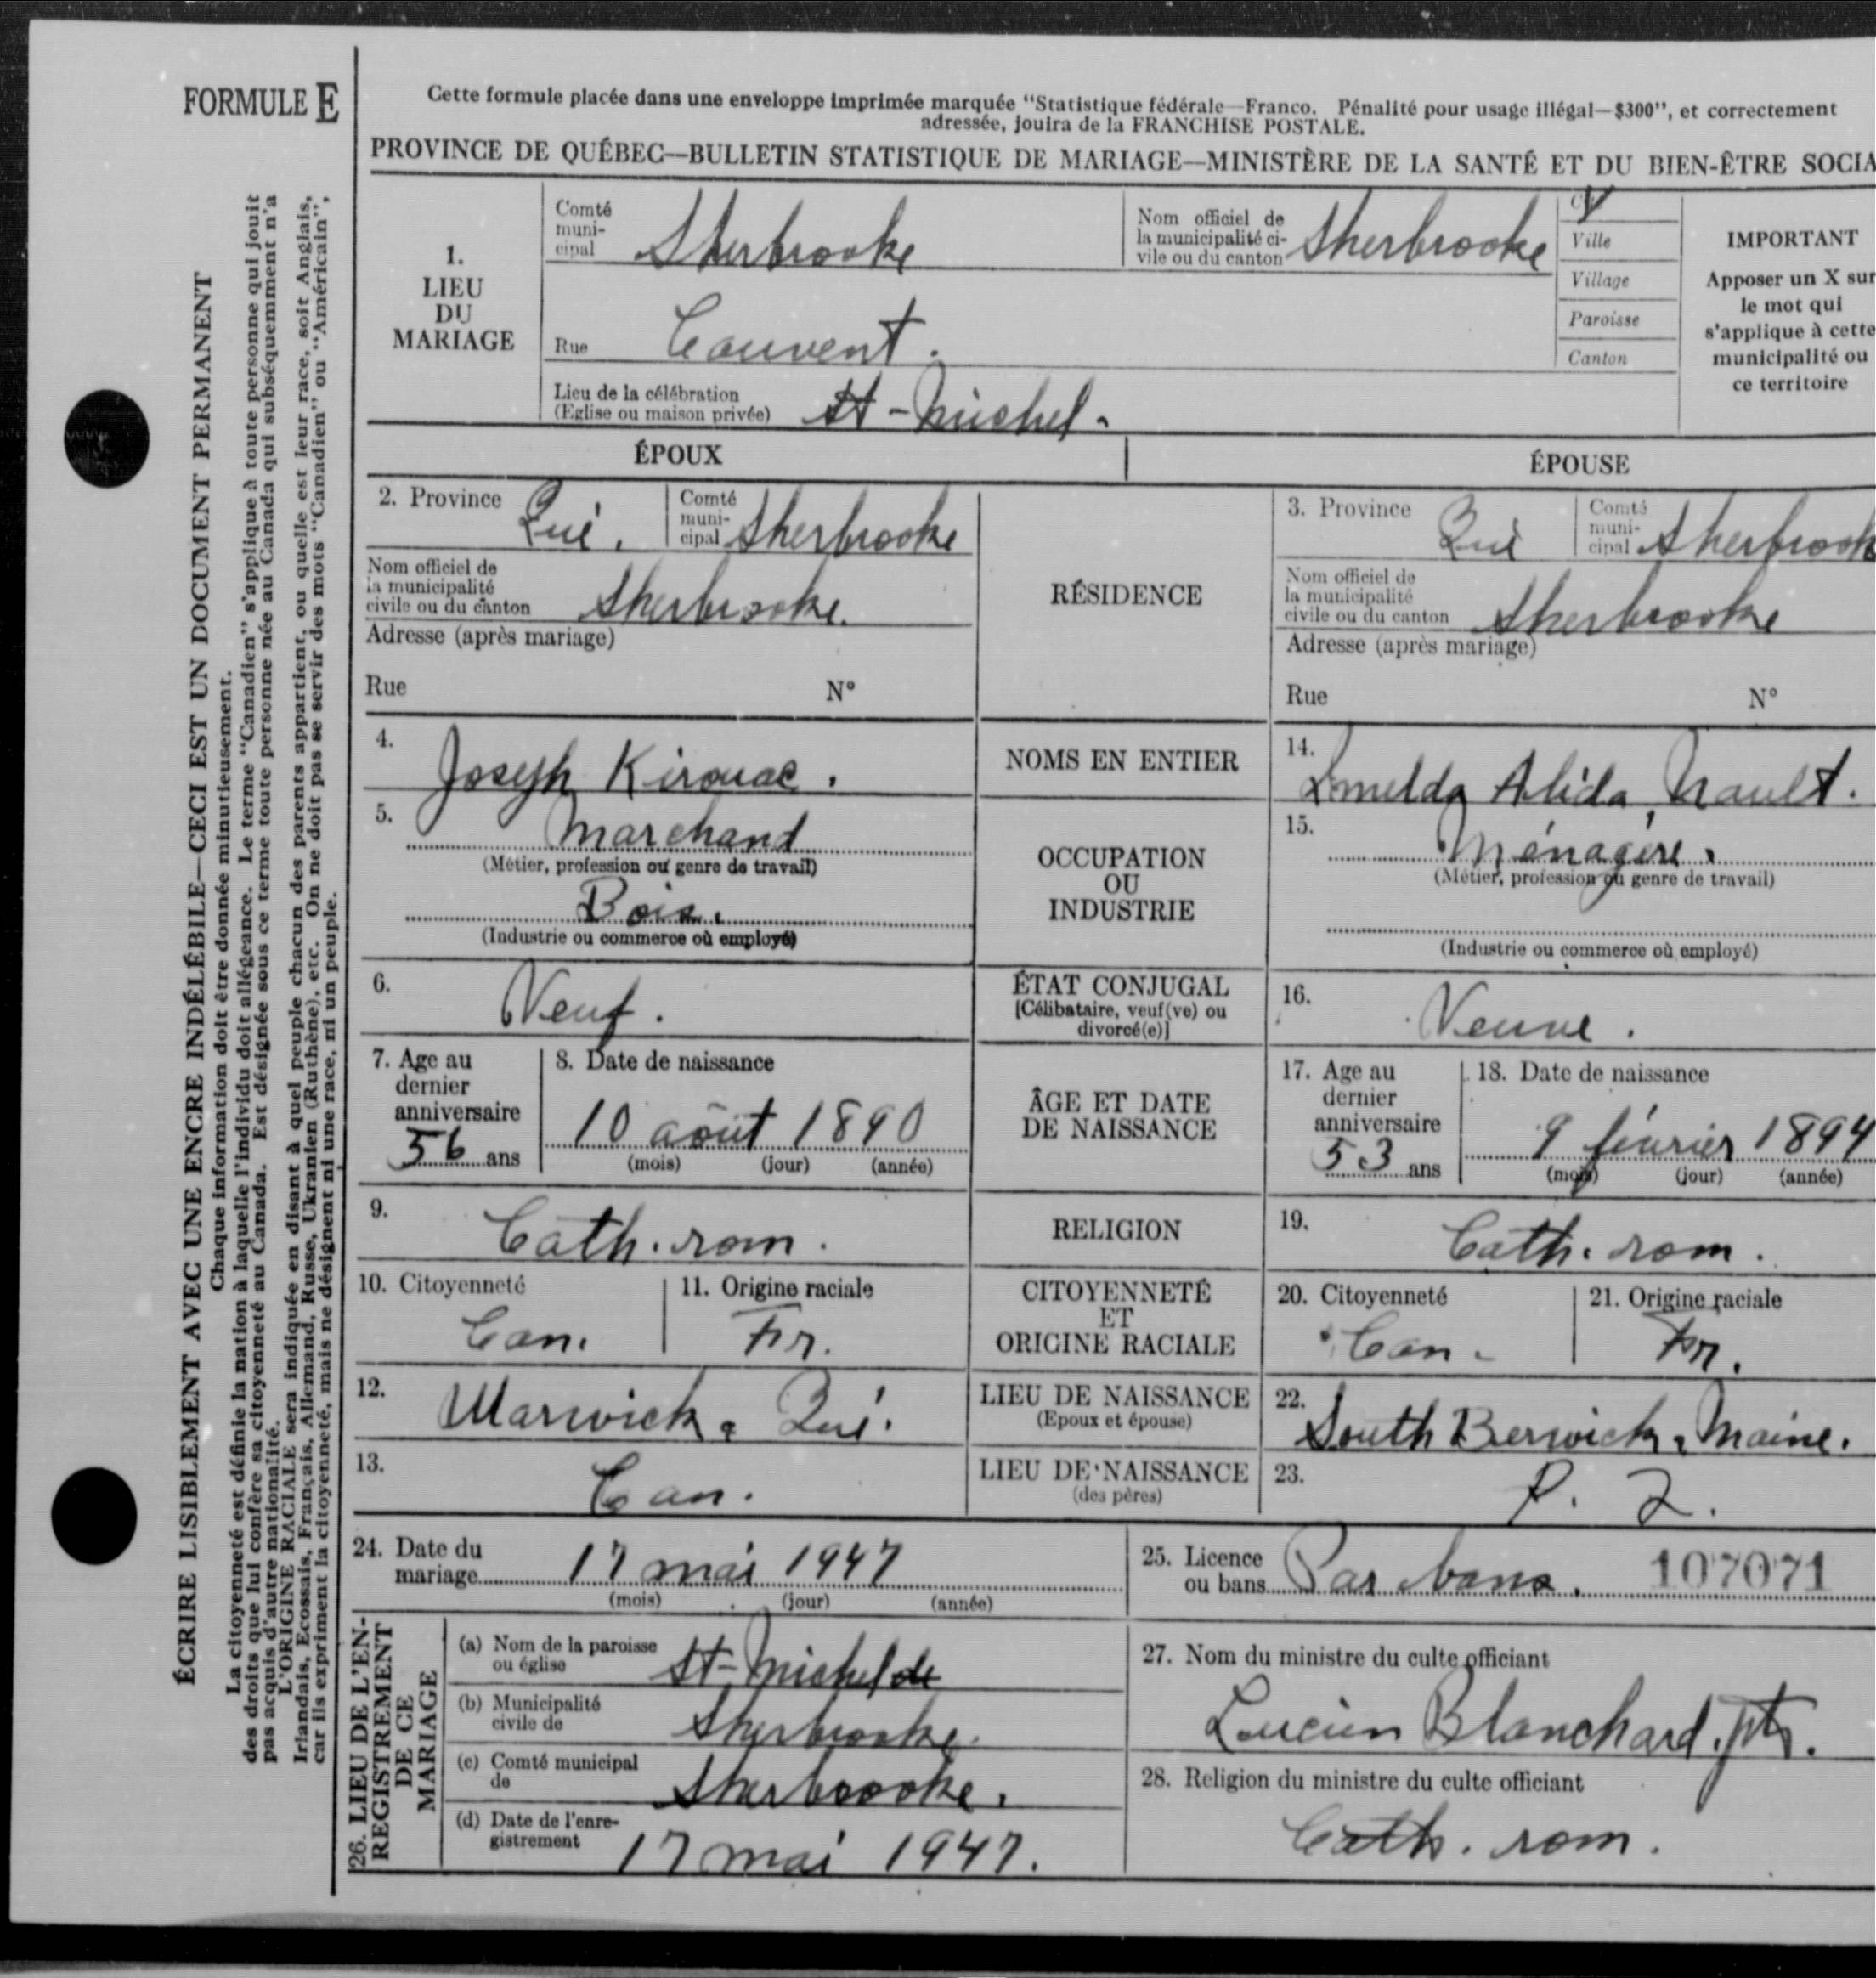 FORMULE E
Cette formule placée dans une enveloppe imprimée marquée "Statistique fédérale—Franco. Pénalité pour usage illégal—$300", et correctement
adressée, jouira de la FRANCHISE POSTALE.
PROVINCE DE QUÉBEC—BULLETIN STATISTIQUE DE MARIAGE—MINISTÈRE DE LA SANTÉ ET DU BIEN-ÊTRE SOCIA
ÉCRIRE LISIBLEMENT AVEC UNE ENCRE INDÉLÉBILE—CECI EST UN DOCUMENT PERMANENT
Chaque information doit être donnée minutieusement.
La citoyenneté est définie la nation à laquelle l'individu doit allégeance. Le terme "Canadien" s'applique à toute personne qui jouit
des droits que lui confère sa citoyenneté au Canada. Est désignée sous ce terme toute personne née au Canada qui subséquemment n'a
pas acquis d'autre nationalité.
L'ORIGINE RACIALE sera indiquée en disant à quel peuple chacun des parents appartient, ou quelle est leur race, soit Anglais,
Irlandais, Ecossais, Français, Allemand, Russe, Ukranien (Ruthène), etc. On ne doit pas se servir des mots "Canadien" ou "Américain",
car ils expriment la citoyenneté, mais ne désignent ni une race, ni un peuple.
1.
LIEU
DU
MARIAGE
Comté
muni-
cipal Sherbrooke
Nom officiel de
la municipalité ci-
vile ou du canton Sherbrooke
Ville
Village
Paroisse
Canton
IMPORTANT
Apposer un X sur
le mot qui
s'applique à cette
municipalité ou
ce territoire
Rue Couvent.
Lieu de la célébration
(Eglise ou maison privée) St-Michel.
ÉPOUX
ÉPOUSE
2. Province Qué.
Comté
muni-
cipal Sherbrooke
RÉSIDENCE
3. Province Qué
Comté
muni-
cipal Sherbrook
Nom officiel de
la municipalité
civile ou du canton Sherbrooke.
Nom officiel de
la municipalité
civile ou du canton Sherbrooke
Adresse (après mariage)
Adresse (après mariage)
Rue N°
Rue N°
4. Joseph Kirouac.
NOMS EN ENTIER
14. Imelda Alida Nault.
5. Marchand
(Métier, profession ou genre de travail)
Bois.
(Industrie ou commerce où employé)
OCCUPATION
OU
INDUSTRIE
15. Ménagère.
(Métier, profession ou genre de travail)
(Industrie ou commerce où employé)
6. Veuf.
ÉTAT CONJUGAL
[Célibataire, veuf(ve) ou
divorcé(e)]
16. Veuve.
7. Age au
dernier
anniversaire
56 ans
8. Date de naissance
10 août 1890
(mois) (jour) (année)
ÂGE ET DATE
DE NAISSANCE
17. Age au
dernier
anniversaire
53 ans
18. Date de naissance
9 février 1894
(mois) (jour) (année)
9. Cath. rom.
RELIGION
19. Cath. rom.
10. Citoyenneté
Can.
11. Origine raciale
Fr.
CITOYENNETÉ
ET
ORIGINE RACIALE
20. Citoyenneté
Can.
21. Origine raciale
Fr.
12. Warwick, Qué.
LIEU DE NAISSANCE
(Epoux et épouse)
22. South Berwick, Maine.
13. Can.
LIEU DE NAISSANCE
(des pères)
23. P. Q.
24. Date du
mariage 17 mai 1947
(mois) (jour) (année)
25. Licence
ou bans Par bans. 107071
26. LIEU DE L'EN-
REGISTREMENT
DE CE
MARIAGE
(a) Nom de la paroisse
ou église St-Michel de
(b) Municipalité
civile de Sherbrooke.
(c) Comté municipal
de Sherbrooke.
(d) Date de l'enre-
gistrement 17 mai 1947.
27. Nom du ministre du culte officiant
Lucien Blanchard. ptr.
28. Religion du ministre du culte officiant
Cath. rom.